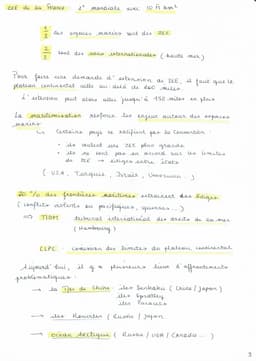 ZEE de la France : 2e mondiale avec 10 M km²
1/3 des espaces marins sont des ZEE
2/3 sont des eaux internationales (haute mer)
Pour faire une demande d'extension de ZEE, il faut que le
plateau continental aille au delà de 200 miles.
L'extension peut alors aller jusqu'à 150 miles en plus
La maritimisation renforce les enjeux autour des espaces
marins
Certains pays ne ratifient pas la Convention :
• ils veulent une ZEE plus grande
• ils ne sont pas en accord sur les limites
de ZEE → litiges entre états
(USA, Turquie, Israël, Venezuela...)
20 % des frontières maritimes entrainent des litiges
(conflits violents ou pacifiques, guerres...)
⇒ TIDM tribunal international des droits de la mer
(Hambourg)
CLPC : commission des limites du plateau continental
Aujourd'hui, il y a plusieurs lieux d'affrontements
problématiques :
→ la Mer de Chine : îles Senkaku (Chine / Japon)
îles Spratley
îles Paracels
→ îles Kouriles (Russie / Japon)
→ océan Arctique (Russie / USA / Canada...)
3